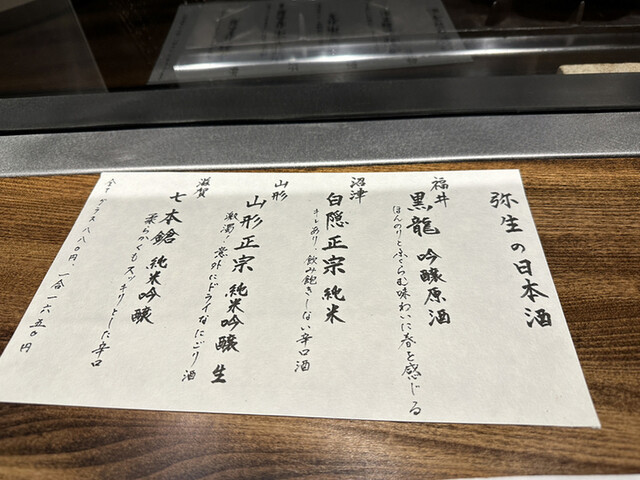 弥生の日本酒
福井
黒龍 吟醸原酒
ほんのりとふくらむ味わいに春を感じる
沼津
白隠正宗 純米
キレあり、飲み飽きしない辛口酒
山形
山形正宗 純米吟醸 生
激濁!意外にドライなにごり酒
滋賀
七本鎗 純米吟醸
柔らかくもスッキリとした辛口
全て グラス八八〇円、一合 一六五〇円